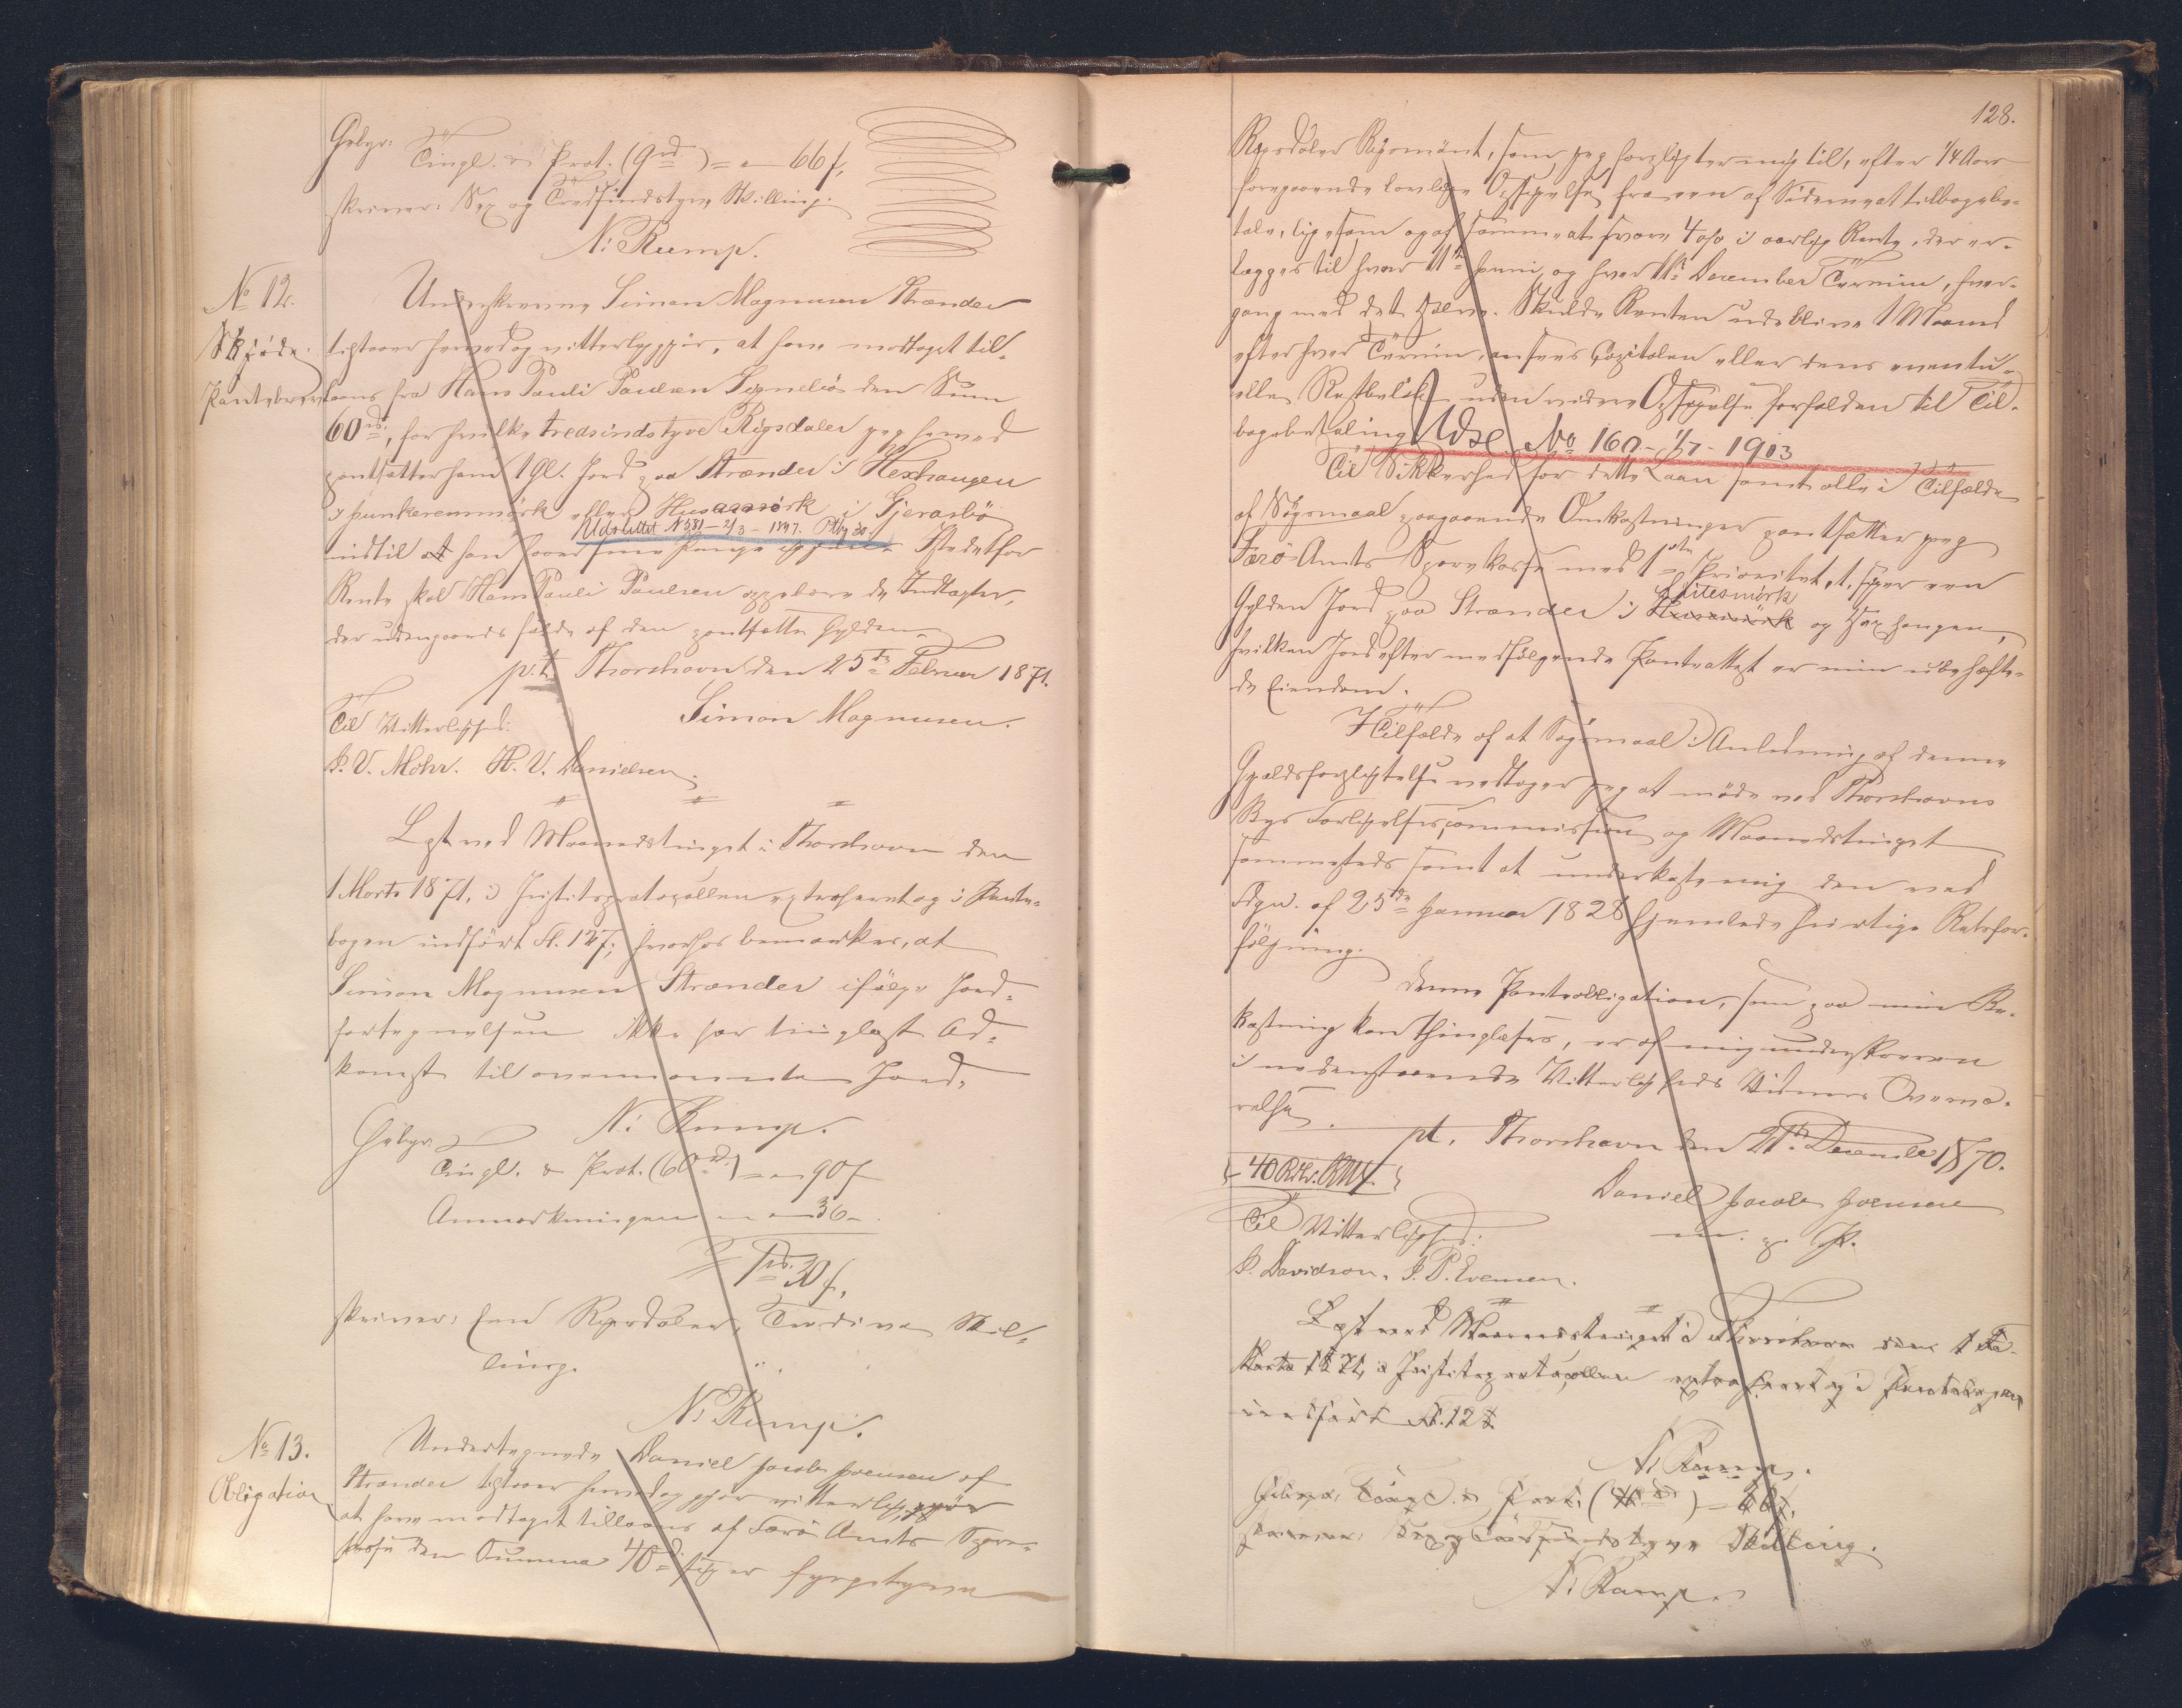 Gebyr:
Tingl. & Prot. (9rd) = " 66 ß,
skriver: Sex og Tredsindstyve Skilling.
N: Rump.
No 12.
Skjøde
Pantebrev
Underskrevne Simon Magnusen Strænder
tilstaaer herved og vitterliggjør, at have modtaget til-
laans fra Hans Pauli Paulsen den Sum
60rd, for hvilke tredsindstyve Rigsdaler jeg herved
pantsætter ham 1 Gl. Jord paa Strænder i Hexhaugen
i eller Husamørk i Gjerasbö
Udslettet N 381 - 2/3 - 1897. Pbg 30.
indtil at han faaer sine Penge Istedetfor
Rente skal Hans Pauli Paulsen oppebære de Indtægter,
der udengaards falde af den pantsatte Gylden.
p.t. Thorshavn den 25de Februar 1871.
Simon Magnusen.
Til Vitterlighed:
P. V. Mohr. H. V. Danielsen.
Læst ved Maanedstinget i Thorshavn den
1 Marts 1871, i Justitsprotocollen extraheret og i Pante-
bogen indført Fl. 127; hvorhos bemærkes, at
Simon Magnusen Strænder ifølge Jord-
fortegnelsen ikke har tinglæst Ad-
komst til ovennævnte Jord.
N: Rump.
Gebyr:
Tingl. & Prot. (60rd) = " 90 ß
Anmærkningen " " 36 -
1rd 30 ß.
skriver: Een Rigsdaler, Tredive Skil-
ling.
N: Rump.
No 13.
Obligation
Undertegnede Daniel Jacob Joensen af
Strænder tilstaaer herved og gjør vitterligt, gjør
at have modtaget tillaans af Færø Amts Spare-
kasse den Summa 40rd, siger fyrgetyve
128.
Rigsdaler Rigsmønt, som jeg forpligter mig til, efter 1/4 Aars
foregaaende lovlige Opsigelse fra een af Siderne at tilbagebe-
tale, ligesom og af samme at svare 4 o/o i aarlig Rente, der er-
lægges til hver 11te Juni og hver 11te December Termin, hver-
gang med det Halve. Skulde Renten udeblive 1 Maaned
efter hver Termin, ansees Capitalen eller dens eventu-
elle Restbeløb uden videre Opsigelse forfalden til Til-
bagebetaling. Udsl. No 160 - 1/7 - 1903
Til Sikkerhed for dette Laan samt alle i Tilfælde
af Søgsmaal paagaaende Omkostninger pantsætter jeg
Færö Amts Sparekasse med 1ste Prioritet, siger een
Gylden Jord paa Strænder i Husamörk Litesmörk og Hexhaugen,
hvilken Jord efter medfølgende Panteattest er min ubehæfte-
de Eiendom.
I Tilfælde af at Søgsmaal i Anledning af denne
Gjældsforpligtelse vedtager jeg at møde ved Thorshavns
Byes Forligelsescommission og Maanedstinget
sammesteds samt at underkaste mig den ved
Frdn. af 25de Januar 1828 hjemlede hurtige Retsfor-
følgning.
Denne Panteobligation, som paa min Be-
kostning kan thinglæses, er af mig underskreven
i nedenstaaende Vitterligheds Vidners Overvæ-
relse.
pt. Thorshavn den 21de December 1870.
40 Rdlr. RMt.
Daniel Jacob Joensen
m. p. P.
Til Vitterlighed:
P. Davidson. J. P. Evensen.
Læst ved Maanedstinget i Thorshavn den 1
Marts 1871, i Justitsprotocollen extraheret og i Pantebogen
indført Fl. 128
N: Rump.
Gebyr: Tingl. & Prot. (40rd) = 66 ß.
skriver: Sex og Tredsindstyve Skilling.
N: Rump.